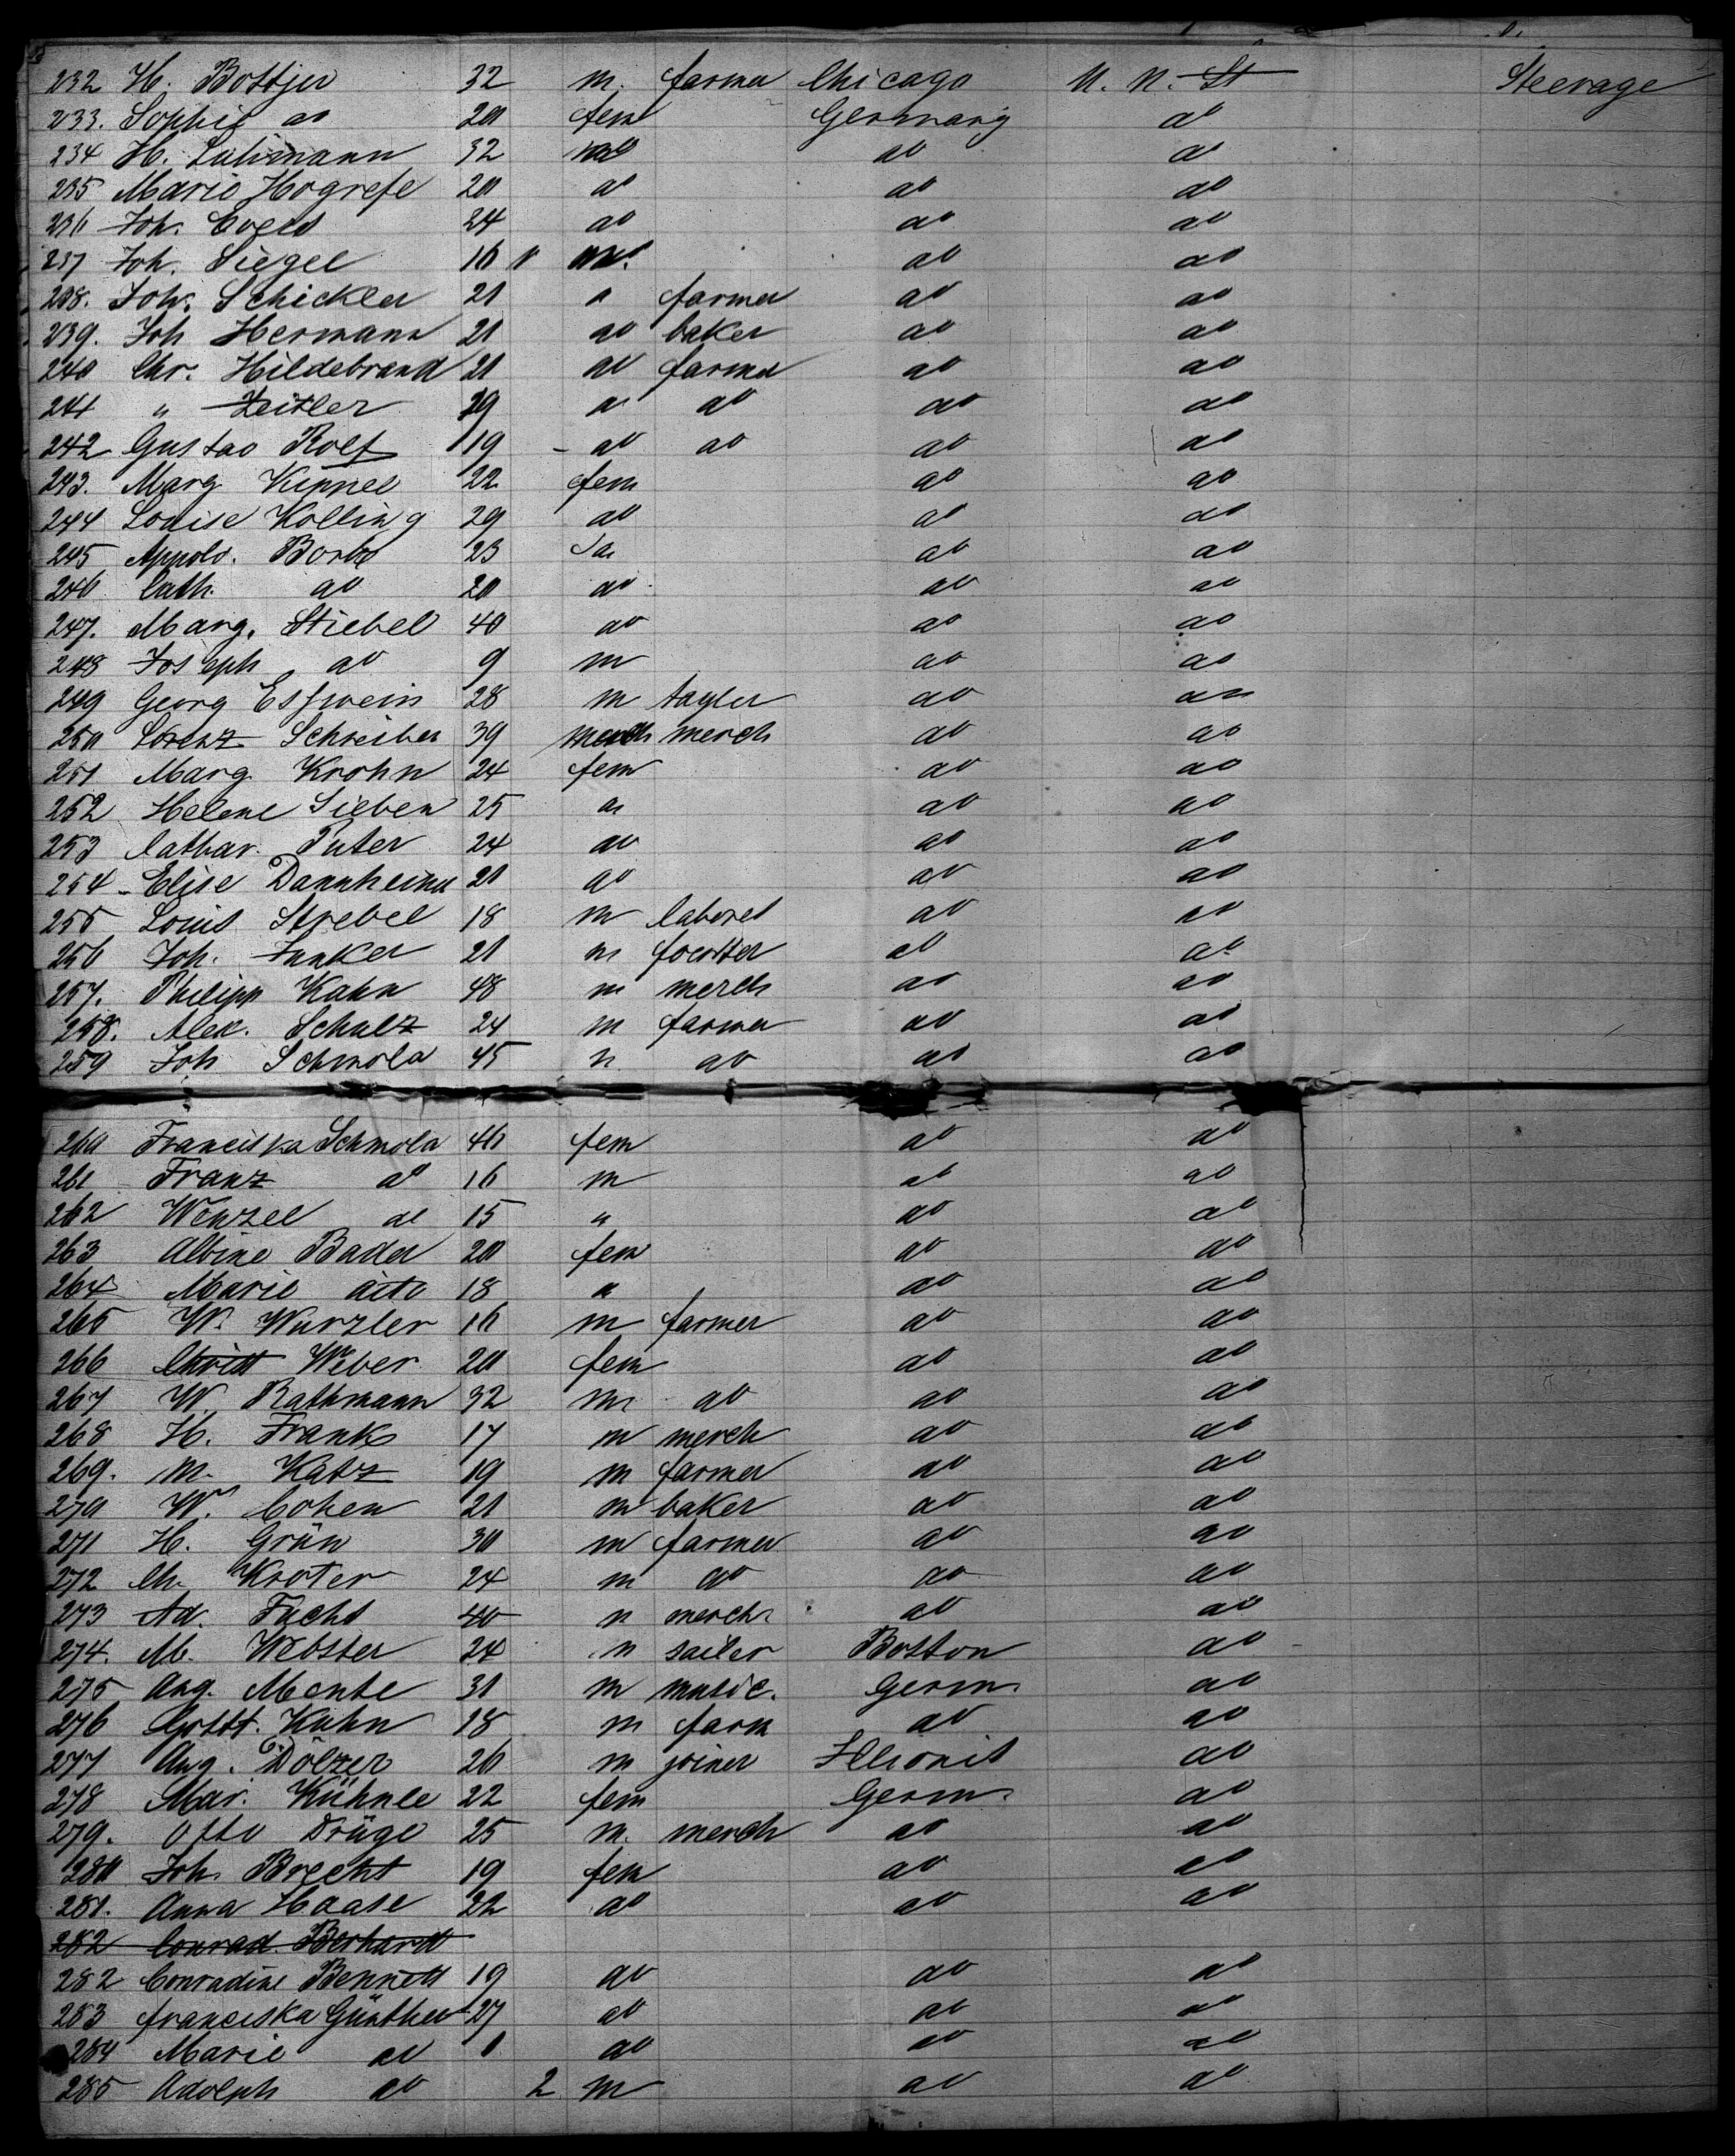 232 H. Bottjer 32 m. farmer Chicago U. N. St Steerage
233. Sophie do 20 fem Germany do
234 H. Luhrmann 32 do do
235 Marie Hogrefe 20 do do do
236 Joh. Evers 24 do do do
237 Joh. Siegel 16 m. do do
238. Joh. Schickler 21 " farmer do do
239. Joh Hermann 21 do baker do do
240 Chr. Hildebrand 21 do farmer do do
241 " Zeitler 29 " do do do
242 Gustav Rolf 19 do do do do
243. Marg Kimmel 22 fem do do
244 Louise Kolling 29 do do do
245 Appolo. 23 do do do
246 Cath. do 20 do do do
247. Marg. Stiebel 40 do do do
248 Joseph do 9 m do do
249 Georg Esswein 28 m tayler do do
250 Lorenz Schreiber 39 merch merch do do
251 Marg Krohn 24 fem do do
252 Helene Sieben 25 " do do
253 Cathar. Puter 24 do do do
254 Elise Dannheimer 21 do do do
255 Louis Strebel 18 m laborer do do
256 Joh. Junker 21 m forster do do
257. Philipp Kahn 48 m merch do do
258. Alex. Schulz 24 m farmer do do
259 Joh Schmola 45 m do do do
260 Franciska Schmola 46 fem do do
261 Franz do 16 m do do
262 Wenzel do 15 " do do
263 Albine Bader 20 fem do do
264 Marie dito 18 " do do
265 W. Wurzler 16 m farmer do do
266 Christ Weber 20 fem do do
267 W. Rathmann 32 m do do do
268 H. Frank 17 m merch do do
269. M. Katz 19 m farmer do do
270 W. Cohen 21 m baker do do
271 H. Grün 30 m farmer do do
272 Ch. Kroter 24 m do do do
273 Ad. Fuchs 40 m merch do do
274. M. Webster 24 m sailer Boston do
275 Aug. Mente 31 m music. Germ. do
276 Gottf. Kuhn 18 m farm do do
277 Aug. Dölzer 26 m joiner Illionis do
278 Mar. Kühnle 22 fem Germ. do
279. Otto Drüge 25 m. merch do do
280 Joh. Brecht 19 fem do do
281. Anna Haase 22 do do do
282 Conrad. Berhardt
282 Conradine Bennett 19 do do do
283 Franciska Günther 27 do do do
284 Marie do 1 do do do
285 Adolph do 2 m do do